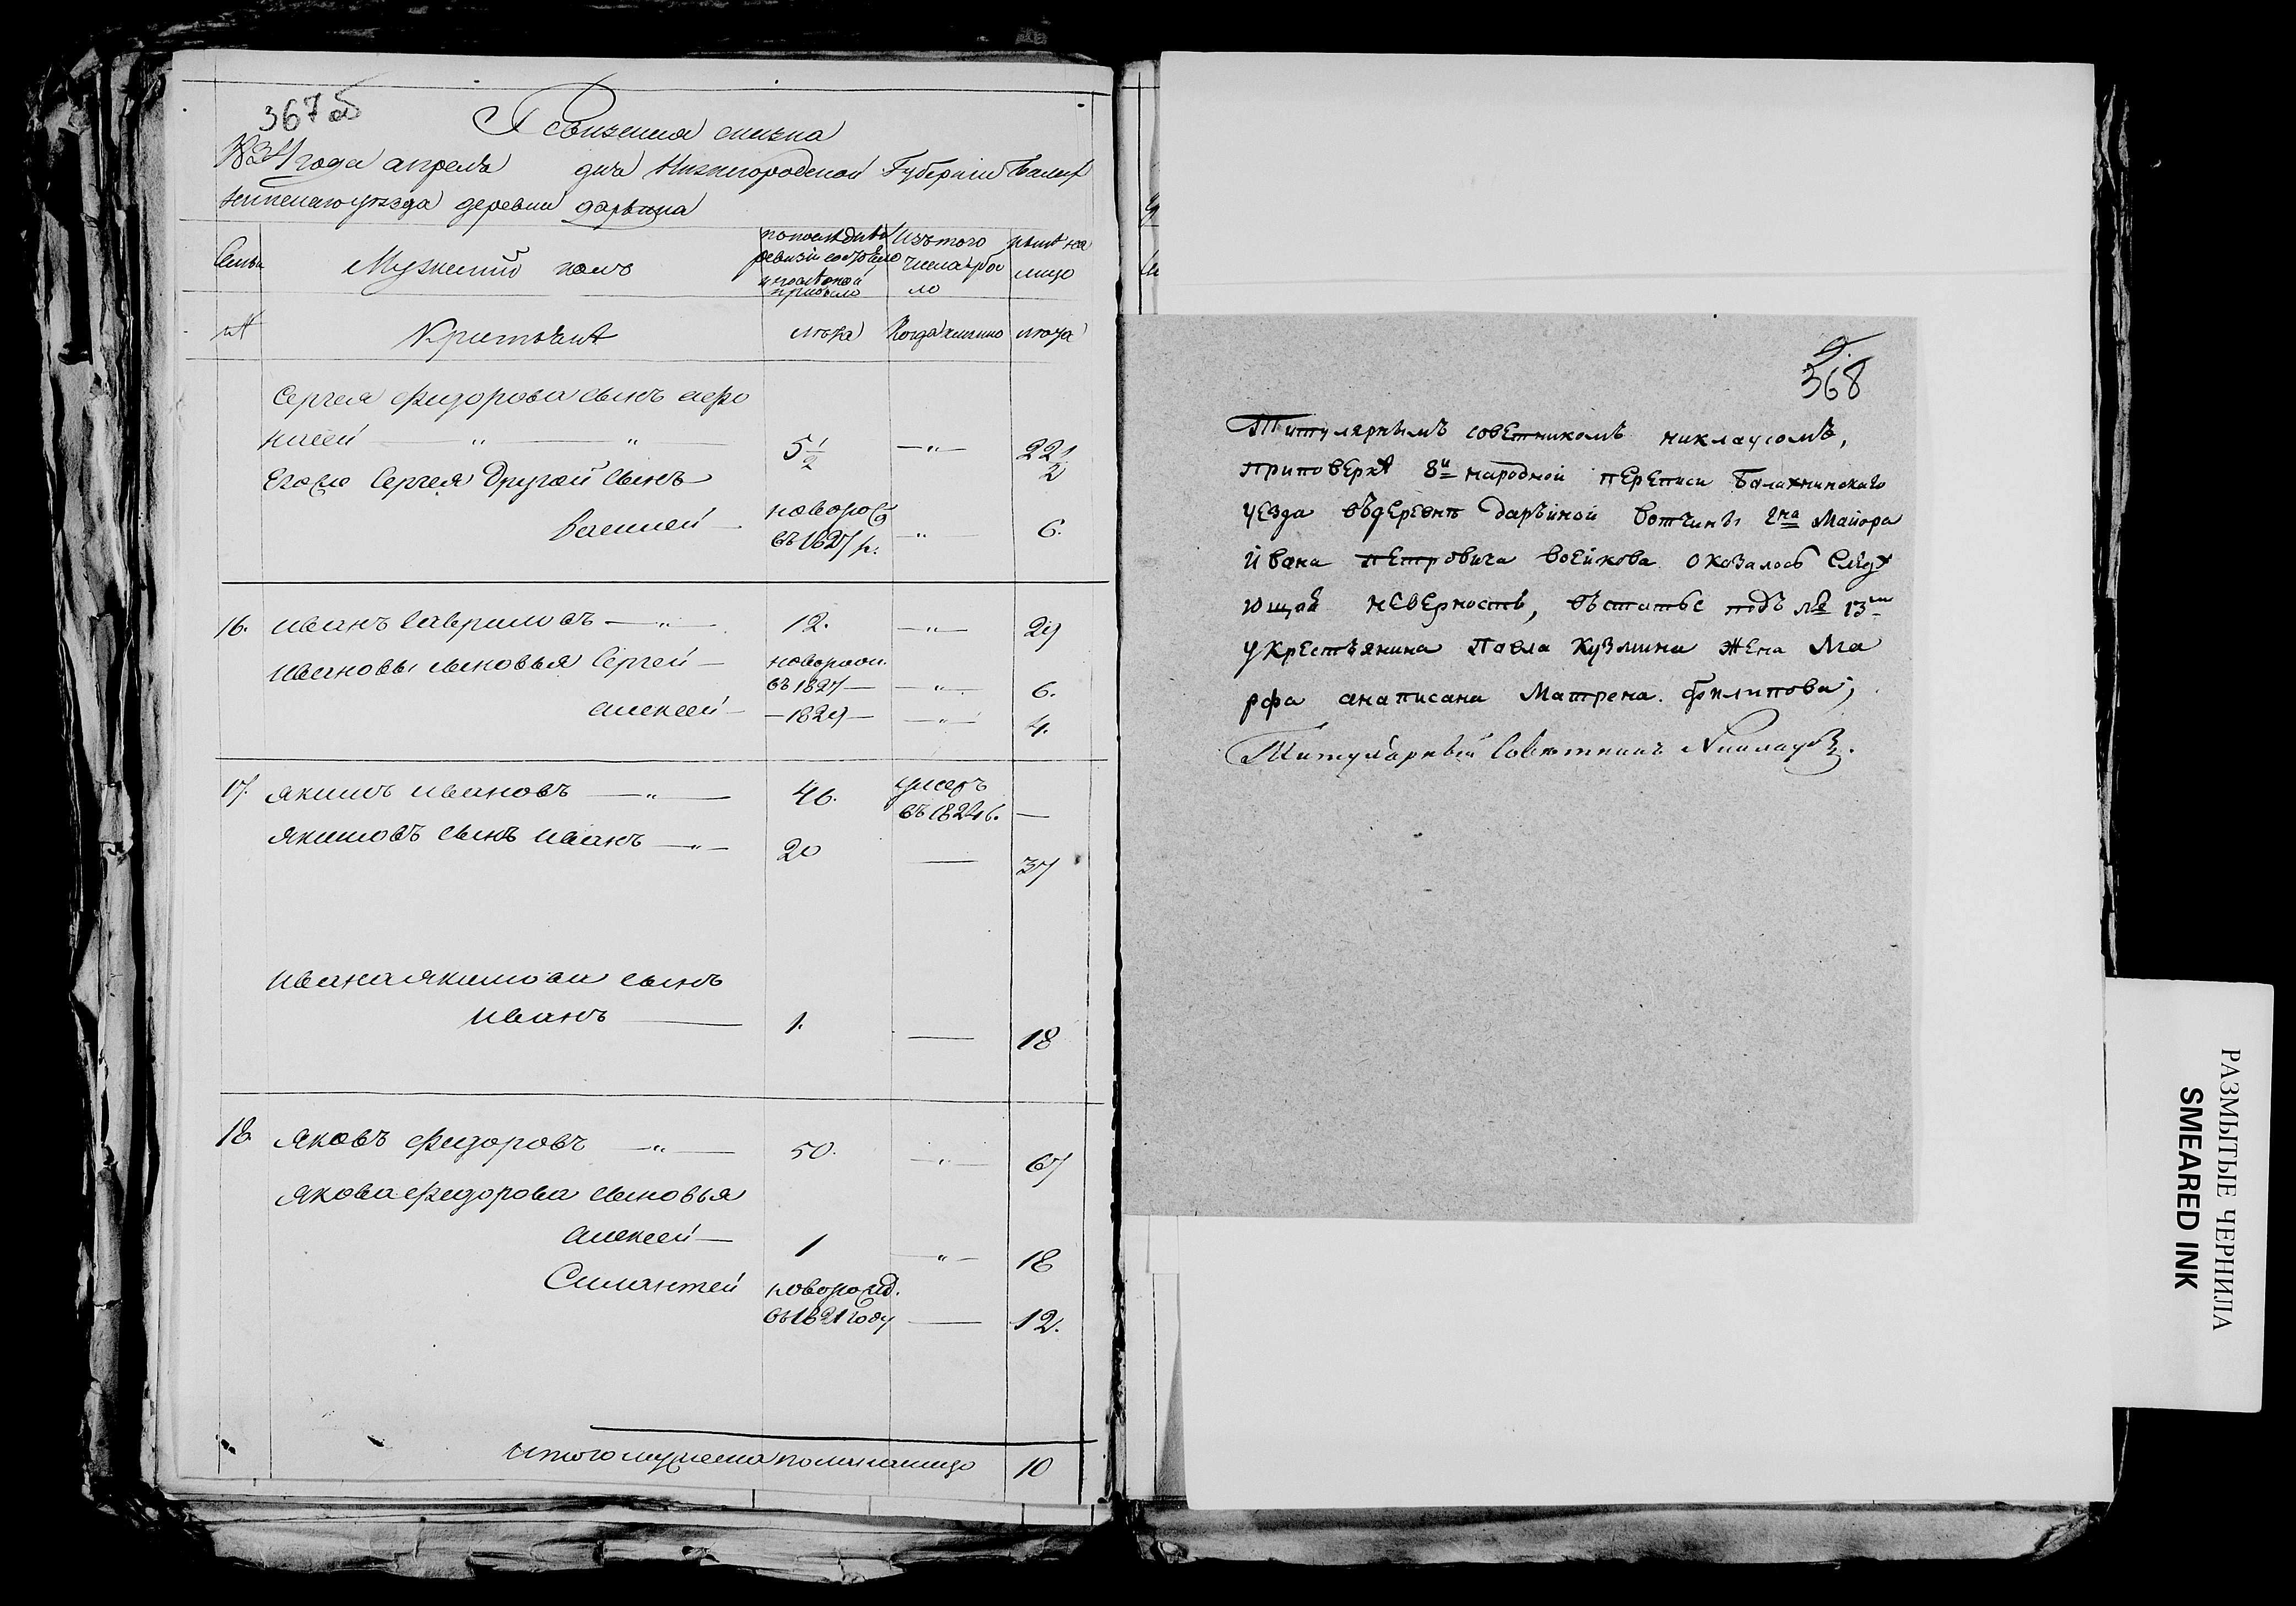 367 об
Ревизская сказка
1834 года апреля дня Нижегородской Губернии Балах
нинского уезда деревни дарьина
Семьи
Мужеский полъ
по последней
ревизии состояло
и после оной
прибыло
Изъ того
числа выбы
ло
ныне на
лицо
№
Крестьяне
лета
Когда именно
лета
Сергея Федорова сынъ афо
насей — " — " —
5 1/2
— " —
22 1/2
Его же Сергея Другой сынъ
Василей —
новорож
въ 1827 г.
— " —
6.
16.
Иванъ Гавриловъ — " —
12.
— " —
29
Ивановы сыновья Сергей —
новорож.
въ 1827 —
— " —
6.
алексей —
— 1829 —
— " —
4.
17.
Якимъ Ивановъ — " —
46.
умеръ
въ 1824 г.
—
Якимовъ сынъ Иванъ — " —
20
—
37
Ивана Якимова сынъ
Иванъ —
1.
—
18
18.
Яковъ Федоровъ — " —
50.
— " —
67
Якова Федорова сыновья
Алексей —
1
— " —
18
Силантей
новорожд.
въ 1821 году
—
12.
Итого мужеска пола налицо
10
9.
368
Титулярнымъ советникомъ никлаусомъ,
приповеркѣ 8й народной переписи Балахнинскаго
уезда въдеревнѣ дарьиной вотчины 2на Майора
Ивана петровича воейкова оказалось след
ющая неверность, въстатье подъ № 13м
укрестьянина Павла Кузмина жена Ма
рфа анаписана Матрена. филипова;
Титулярный Советникъ Никлаусъ.
РАЗМЫТЫЕ ЧЕРНИЛА
SMEARED INK